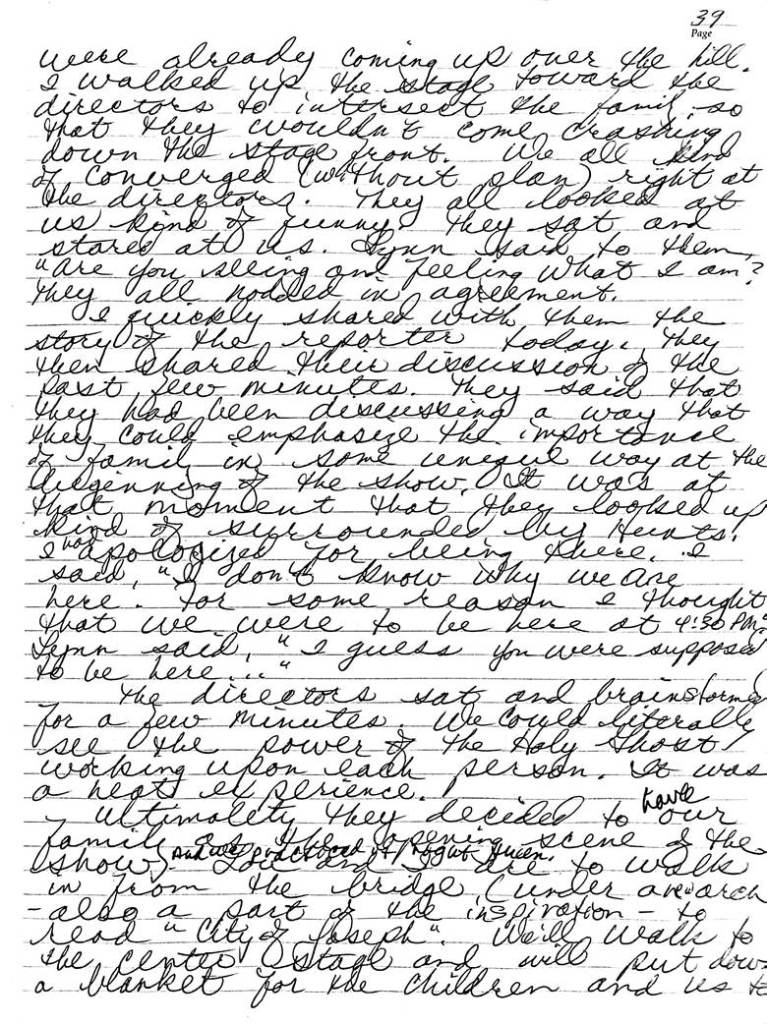 39
Page
were already coming up over the hill.
I walked up the stage toward the
directors to intersect the family so
that they wouldn't come crashing
down the stage front. We all kind
of converged (without plan) right at
the directors. They all looked at
us kind of funny. They sat and
stared at us. Lynn said to them,
"are you seeing and feeling what I am?
They all nodded in agreement.
I quickly shared with them the
story of the reporter today. They
then shared their discussion of the
past few minutes. They said that
they had been discussing a way that
they could emphasize the importance
of family in some unique way at the
beginning of the show. It was at
that moment that they looked up
kind of surrounded by Hunts.
I had apologized for being there. I
said, "I don't know why we are
here. For some reason I thought
that we were to be here at 4:30 PM."
Lynn said, "I guess you were supposed
to be here..."
The directors sat and brainstormed
for a few minutes. We could literally
see the power of the Holy Ghost
working upon each person. It was
a neat experience.
Ultimalety they decided to have our
family as the opening scene of the
show. and we practiced it right then.
and I are to walk
in from the bridge (under a arch
- also a part of the inspiration - to
read "City of Joseph". We'll walk to
the center stage and will put down
a blanket for the children and us to